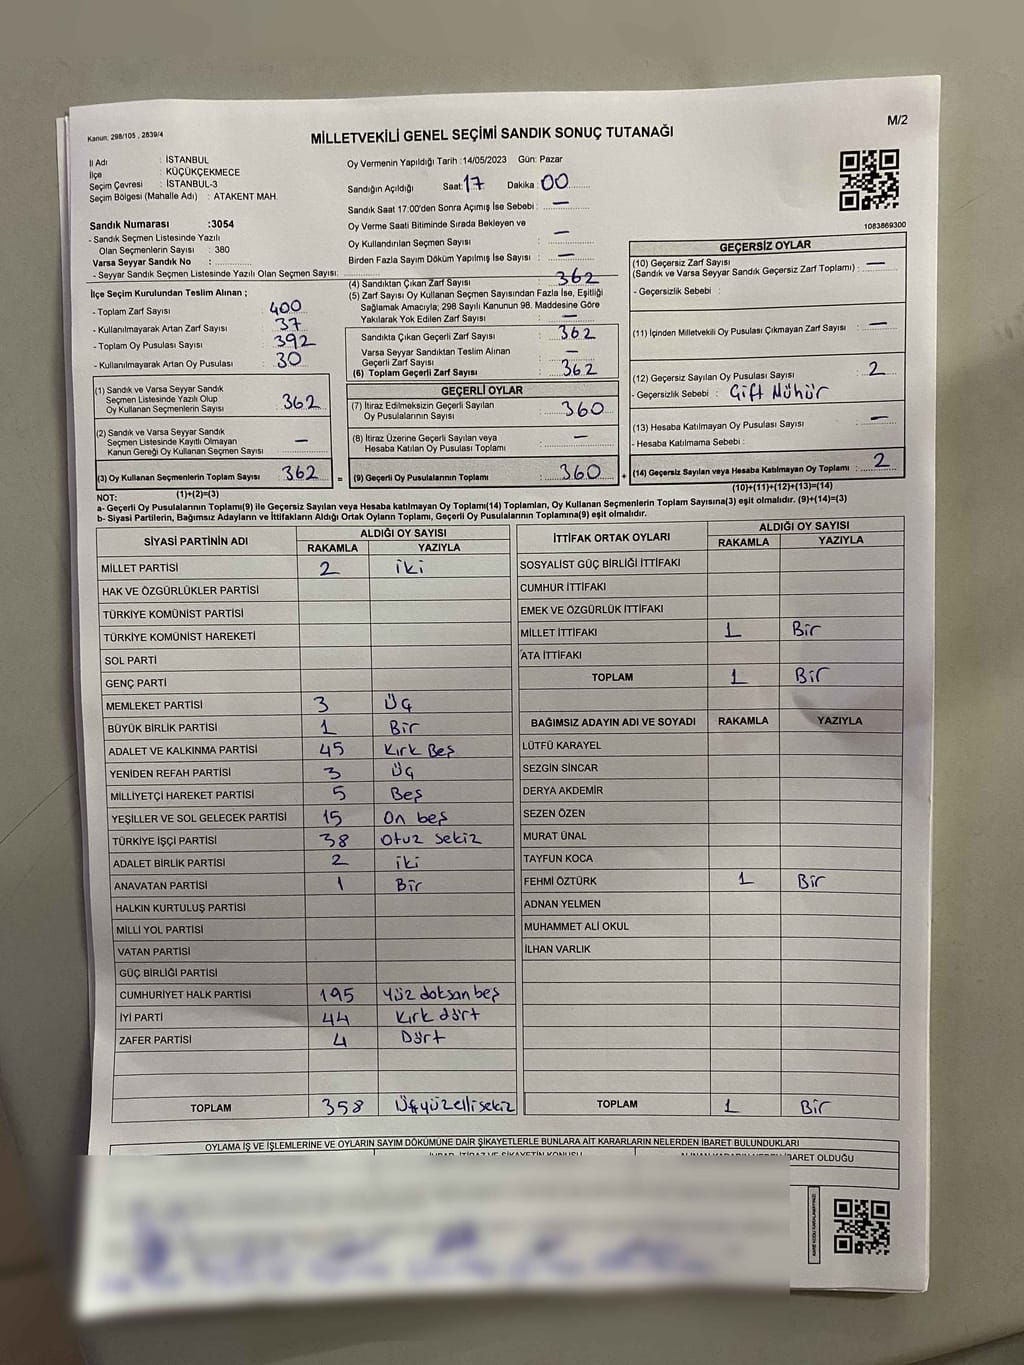 Kanun: 298/105 , 2839/4
M/2
MİLLETVEKİLİ GENEL SEÇİMİ SANDIK SONUÇ TUTANAĞI
İl Adı : İSTANBUL
İlçe : KÜÇÜKÇEKMECE
Seçim Çevresi : İSTANBUL-3
Seçim Bölgesi (Mahalle Adı) : ATAKENT MAH.
Sandık Numarası :3054
- Sandık Seçmen Listesinde Yazılı
Olan Seçmenlerin Sayısı : 380
Varsa Seyyar Sandık No :
- Seyyar Sandık Seçmen Listesinde Yazılı Olan Seçmen Sayısı:
Oy Vermenin Yapıldığı Tarih :14/05/2023 Gün: Pazar
Sandığın Açıldığı Saat: 17 Dakika: 00
Sandık Saat 17:00'den Sonra Açımış İse Sebebi : —
Oy Verme Saati Bitiminde Sırada Bekleyen ve
Oy Kullandırılan Seçmen Sayısı : —
Birden Fazla Sayım Döküm Yapılmış İse Sayısı : —
1083869300
İlçe Seçim Kurulundan Teslim Alınan ;
- Toplam Zarf Sayısı : 400
- Kullanılmayarak Artan Zarf Sayısı : 37
- Toplam Oy Pusulası Sayısı : 392
- Kullanılmayarak Artan Oy Pusulası : 30
(1) Sandık ve Varsa Seyyar Sandık
Seçmen Listesinde Yazılı Olup
Oy Kullanan Seçmenlerin Sayısı : 362
(2) Sandık ve Varsa Seyyar Sandık
Seçmen Listesinde Kayıtlı Olmayan
Kanun Gereği Oy Kullanan Seçmen Sayısı : —
(3) Oy Kullanan Seçmenlerin Toplam Sayısı : 362
(1)+(2)=(3)
(4) Sandıktan Çıkan Zarf Sayısı : 362
(5) Zarf Sayısı Oy Kullanan Seçmen Sayısından Fazla İse, Eşitliği
Sağlamak Amacıyla; 298 Sayılı Kanunun 98. Maddesine Göre
Yakılarak Yok Edilen Zarf Sayısı : —
Sandıkta Çıkan Geçerli Zarf Sayısı : 362
Varsa Seyyar Sandıktan Teslim Alınan
Geçerli Zarf Sayısı : —
(6) Toplam Geçerli Zarf Sayısı : 362
GEÇERLİ OYLAR
(7) İtiraz Edilmeksizin Geçerli Sayılan
Oy Pusulalarının Sayısı : 360
(8) İtiraz Üzerine Geçerli Sayılan veya
Hesaba Katılan Oy Pusulası Toplamı : —
= (9) Geçerli Oy Pusulalarının Toplamı : 360 +
GEÇERSİZ OYLAR
(10) Geçersiz Zarf Sayısı
(Sandık ve Varsa Seyyar Sandık Geçersiz Zarf Toplamı) : —
- Geçersizlik Sebebi :
(11) İçinden Milletvekili Oy Pusulası Çıkmayan Zarf Sayısı : —
(12) Geçersiz Sayılan Oy Pusulası Sayısı : 2
- Geçersizlik Sebebi : Çift Mühür
(13) Hesaba Katılmayan Oy Pusulası Sayısı : —
- Hesaba Katılmama Sebebi :
(14) Geçersiz Sayılan veya Hesaba Katılmayan Oy Toplamı : 2
(10)+(11)+(12)+(13)=(14)
NOT:
a- Geçerli Oy Pusulalarının Toplamı(9) ile Geçersiz Sayılan veya Hesaba katılmayan Oy Toplamı(14) Toplamları, Oy Kullanan Seçmenlerin Toplam Sayısına(3) eşit olmalıdır. (9)+(14)=(3)
b- Siyasi Partilerin, Bağımsız Adayların ve İttifakların Aldığı Ortak Oyların Toplamı, Geçerli Oy Pusulalarının Toplamına(9) eşit olmalıdır.
SİYASİ PARTİNİN ADI ALDIĞI OY SAYISI
RAKAMLA YAZIYLA
MİLLET PARTİSİ 2 iki
HAK VE ÖZGÜRLÜKLER PARTİSİ
TÜRKİYE KOMÜNİST PARTİSİ
TÜRKİYE KOMÜNİST HAREKETİ
SOL PARTİ
GENÇ PARTİ
MEMLEKET PARTİSİ 3 Üç
BÜYÜK BİRLİK PARTİSİ 1 Bir
ADALET VE KALKINMA PARTİSİ 45 Kırk Beş
YENİDEN REFAH PARTİSİ 3 Üç
MİLLİYETÇİ HAREKET PARTİSİ 5 Beş
YEŞİLLER VE SOL GELECEK PARTİSİ 15 On beş
TÜRKİYE İŞÇİ PARTİSİ 38 Otuz sekiz
ADALET BİRLİK PARTİSİ 2 iki
ANAVATAN PARTİSİ 1 Bir
HALKIN KURTULUŞ PARTİSİ
MİLLİ YOL PARTİSİ
VATAN PARTİSİ
GÜÇ BİRLİĞİ PARTİSİ
CUMHURİYET HALK PARTİSİ 195 Yüz doksan beş
İYİ PARTİ 44 Kırk dört
ZAFER PARTİSİ 4 Dört
TOPLAM 358 Üçyüzellisekiz
İTTİFAK ORTAK OYLARI ALDIĞI OY SAYISI
RAKAMLA YAZIYLA
SOSYALİST GÜÇ BİRLİĞİ İTTİFAKI
CUMHUR İTTİFAKI
EMEK VE ÖZGÜRLÜK İTTİFAKI
MİLLET İTTİFAKI 1 Bir
ATA İTTİFAKI
TOPLAM 1 Bir
BAĞIMSIZ ADAYIN ADI VE SOYADI RAKAMLA YAZIYLA
LÜTFÜ KARAYEL
SEZGİN SİNCAR
DERYA AKDEMİR
SEZEN ÖZEN
MURAT ÜNAL
TAYFUN KOCA
FEHMİ ÖZTÜRK 1 Bir
ADNAN YELMEN
MUHAMMET ALİ OKUL
İLHAN VARLIK
TOPLAM 1 Bir
OYLAMA İŞ VE İŞLEMLERİNE VE OYLARIN SAYIM DÖKÜMÜNE DAİR ŞİKAYETLERLE BUNLARA AİT KARARLARIN NELERDEN İBARET BULUNDUKLARI